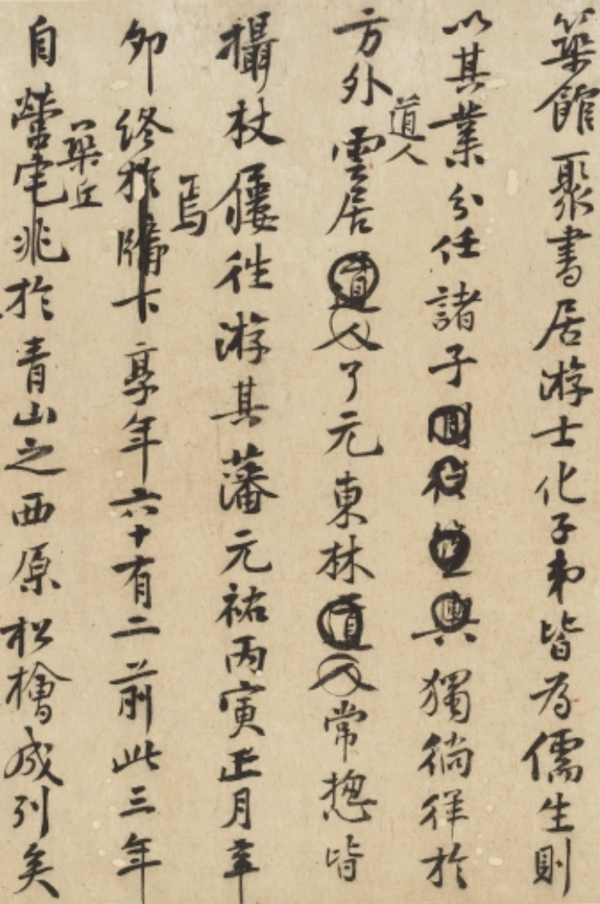 築館聚書居游士化子弟皆為儒生則
以其業分任諸子獨徜徉於
道人
方外雲居道人了元東林道人常惣皆
攝杖屨往游其藩元祐丙寅正月辛
焉
卯終於牖下享年六十有二前此三年
築丘
自營宅兆於青山之西原松檜成列矣